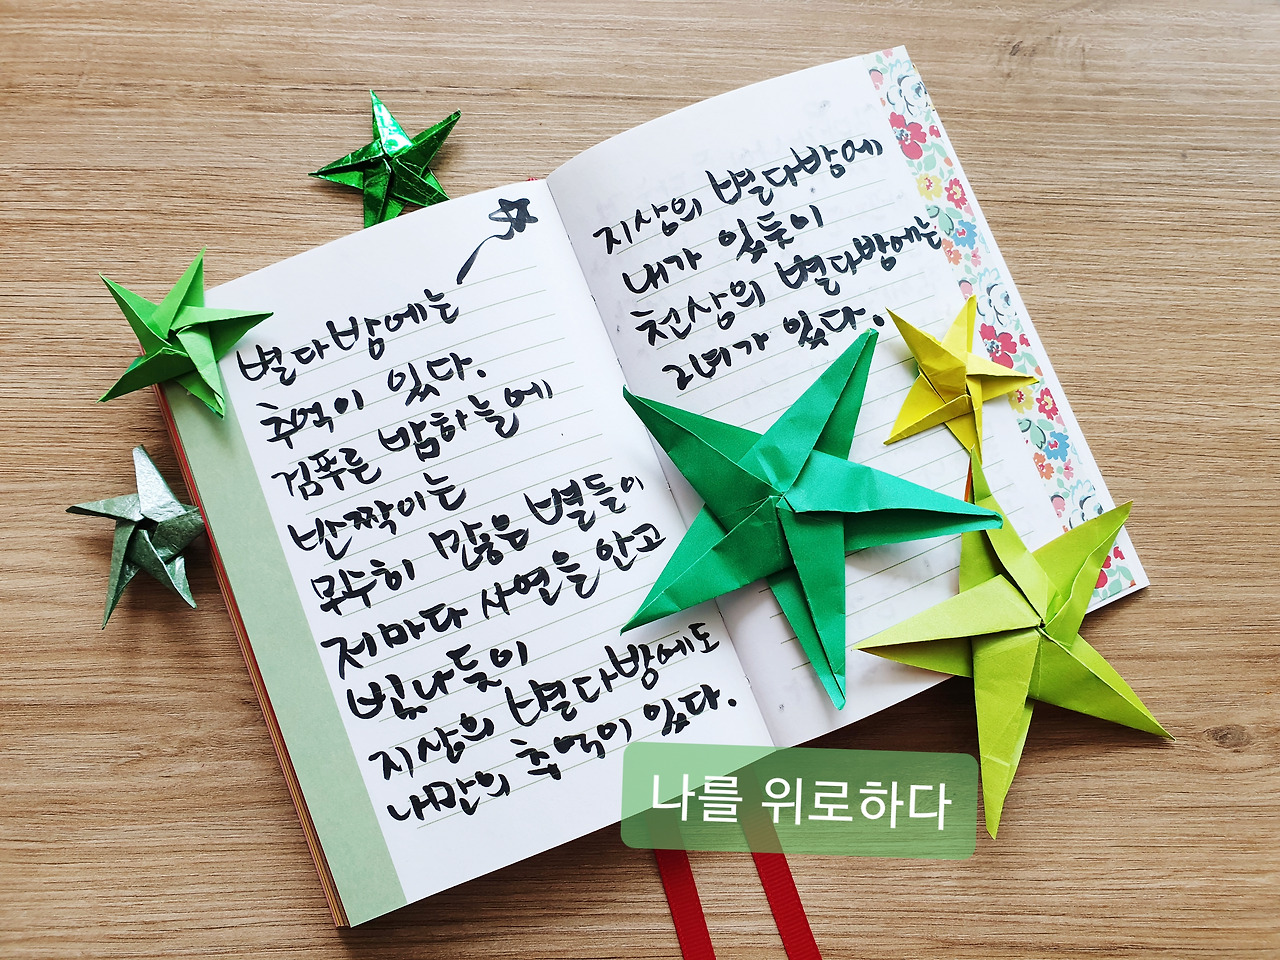 별다방에는
추억이 있다.
검푸른 밤하늘에
반짝이는
무수히 많은 별들이
저마다 사연을 안고
빛나듯이
지상의 별다방에도
나만의 추억이 있다.
지상의 별다방에
내가 있듯이
천상의 별다방에는
그녀가 있다.
나를 위로하다